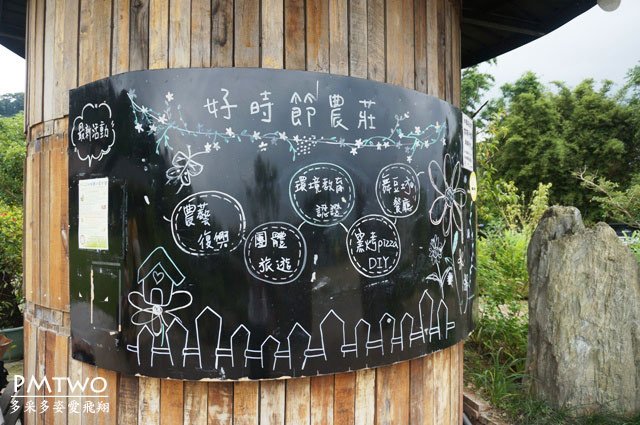 好時節農莊
最新活動
農藝
復興
團體
旅遊
環境教育
認證
窯烤pizza
DIY
餐廳
PMTWO
多采多姿愛飛翔